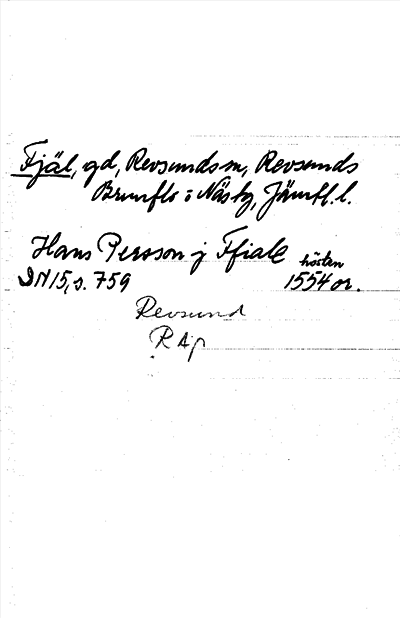 Fjäl, gd, Revsunds sn, Revsunds
Brunflo o Näs tg, Jämtl. l.
Hans Persson j Ffiale hösten
DN 15, s. 759 1554 or.
Revsund
RAp